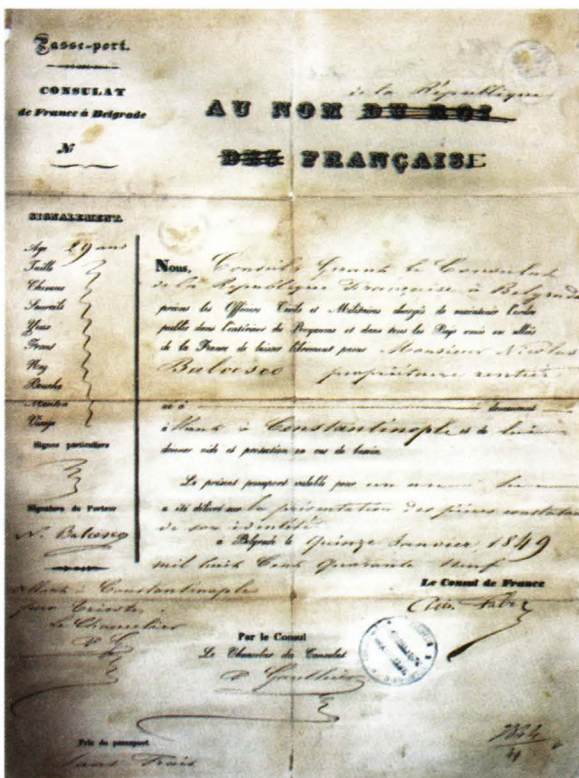 Passe-port.
CONSULAT
de France à Belgrade
N
de la République
AU NOM DU ROI
DES FRANÇAISE
SIGNALEMENT.
Age 29 ans
Taille
Cheveux
Sourcils
Yeux
Front
Nez
Bouche
Menton
Visage
Signes particuliers
Signature du Porteur
N. Balcesco
Nous, Consul Gérant le Consulat
de la République Française à Belgrade
prions les Officiers Civils et Militaires chargés de maintenir l'ordre
public dans l'intérieur du Royaume et dans tous les Pays amis ou alliés
de la France de laisser librement passer Monsieur Nicolas
Balcesco propriétaire rentier
né à demeurant
allant à Constantinople et de lui
donner aide et protection en cas de besoin.
Le présent passeport valable pour un an
a été délivré sur la présentation des pièces
de son identité
à Belgrade le quinze Janvier 1849
mil huit Cent quarante neuf
Le Consul de France
Allant à Constantinople
par
Le Chancelier
Par le Consul
Le Chancelier du Consulat
Prix du passeport
Sans Frais